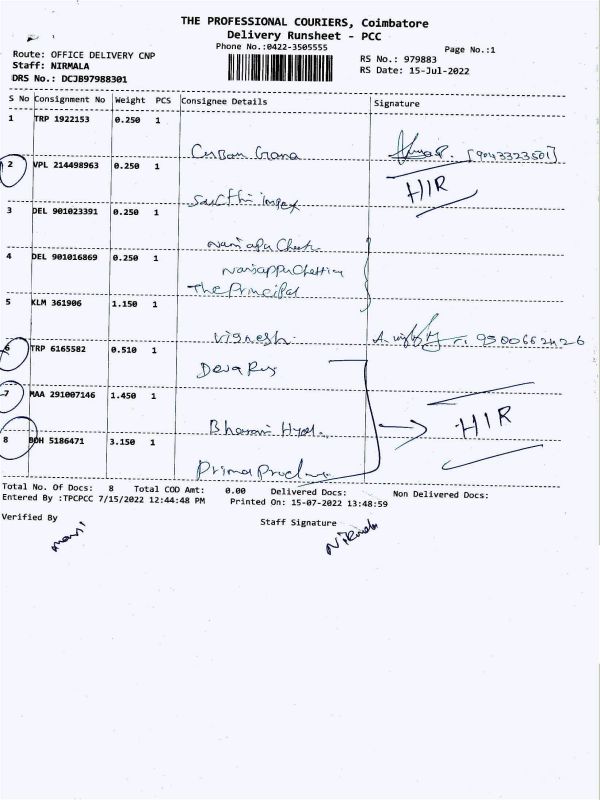 THE PROFESSIONAL COURIERS, Coimbatore
Delivery Runsheet - PCC
Phone No.:0422-3505555
Page No.:1
Route: OFFICE DELIVERY CNP
RS No.: 979883
Staff: NIRMALA
RS Date: 15-Jul-2022
DRS No.: DCJB97988301
S No Consignment No Weight PCS Consignee Details Signature
1 TRP 1922153 0.250 1
[9043323501]
2 VPL 214498963 0.250 1
HIR
3 DEL 901023391 0.250 1
4 DEL 901016869 0.250 1
Nanjappa Chettiar
The Principal
5 KLM 361906 1.150 1
Vignesh
6 TRP 6165582 0.510 1
7 MAA 291007146 1.450 1
HIR
8 BDH 5186471 3.150 1
Total No. Of Docs: 8 Total COD Amt: 0.00 Delivered Docs: Non Delivered Docs:
Entered By :TPCPCC 7/15/2022 12:44:48 PM Printed On: 15-07-2022 13:48:59
Verified By
Staff Signature
Nirmala